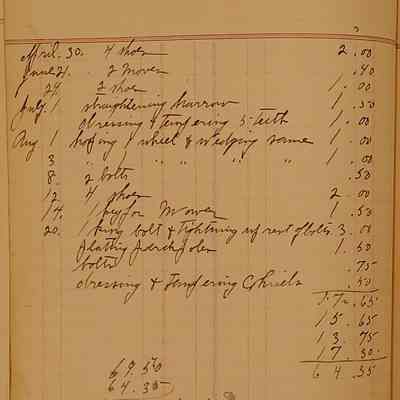 April. 30. 4 shoes 2.00
June 21. " 2 moves .40
24. 2 shoes 1.00
July. 1 straightening harrow 1.50
dressing & tempering 5 teeth 1.00
Aug. 1 hooping 1 wheel & wedging same 1.00
3 " " " " " 1.00
8. 2 bolts .50
12 4 shoes 2.00
14. 1 key for Mower 1.50
20. 1 king bolt & tightning up rest of bolts 3.00
1.50
bolts .75
dressing & tempering .50
17.65
15.65
13.75
17.30
69.50 64.35
64.35